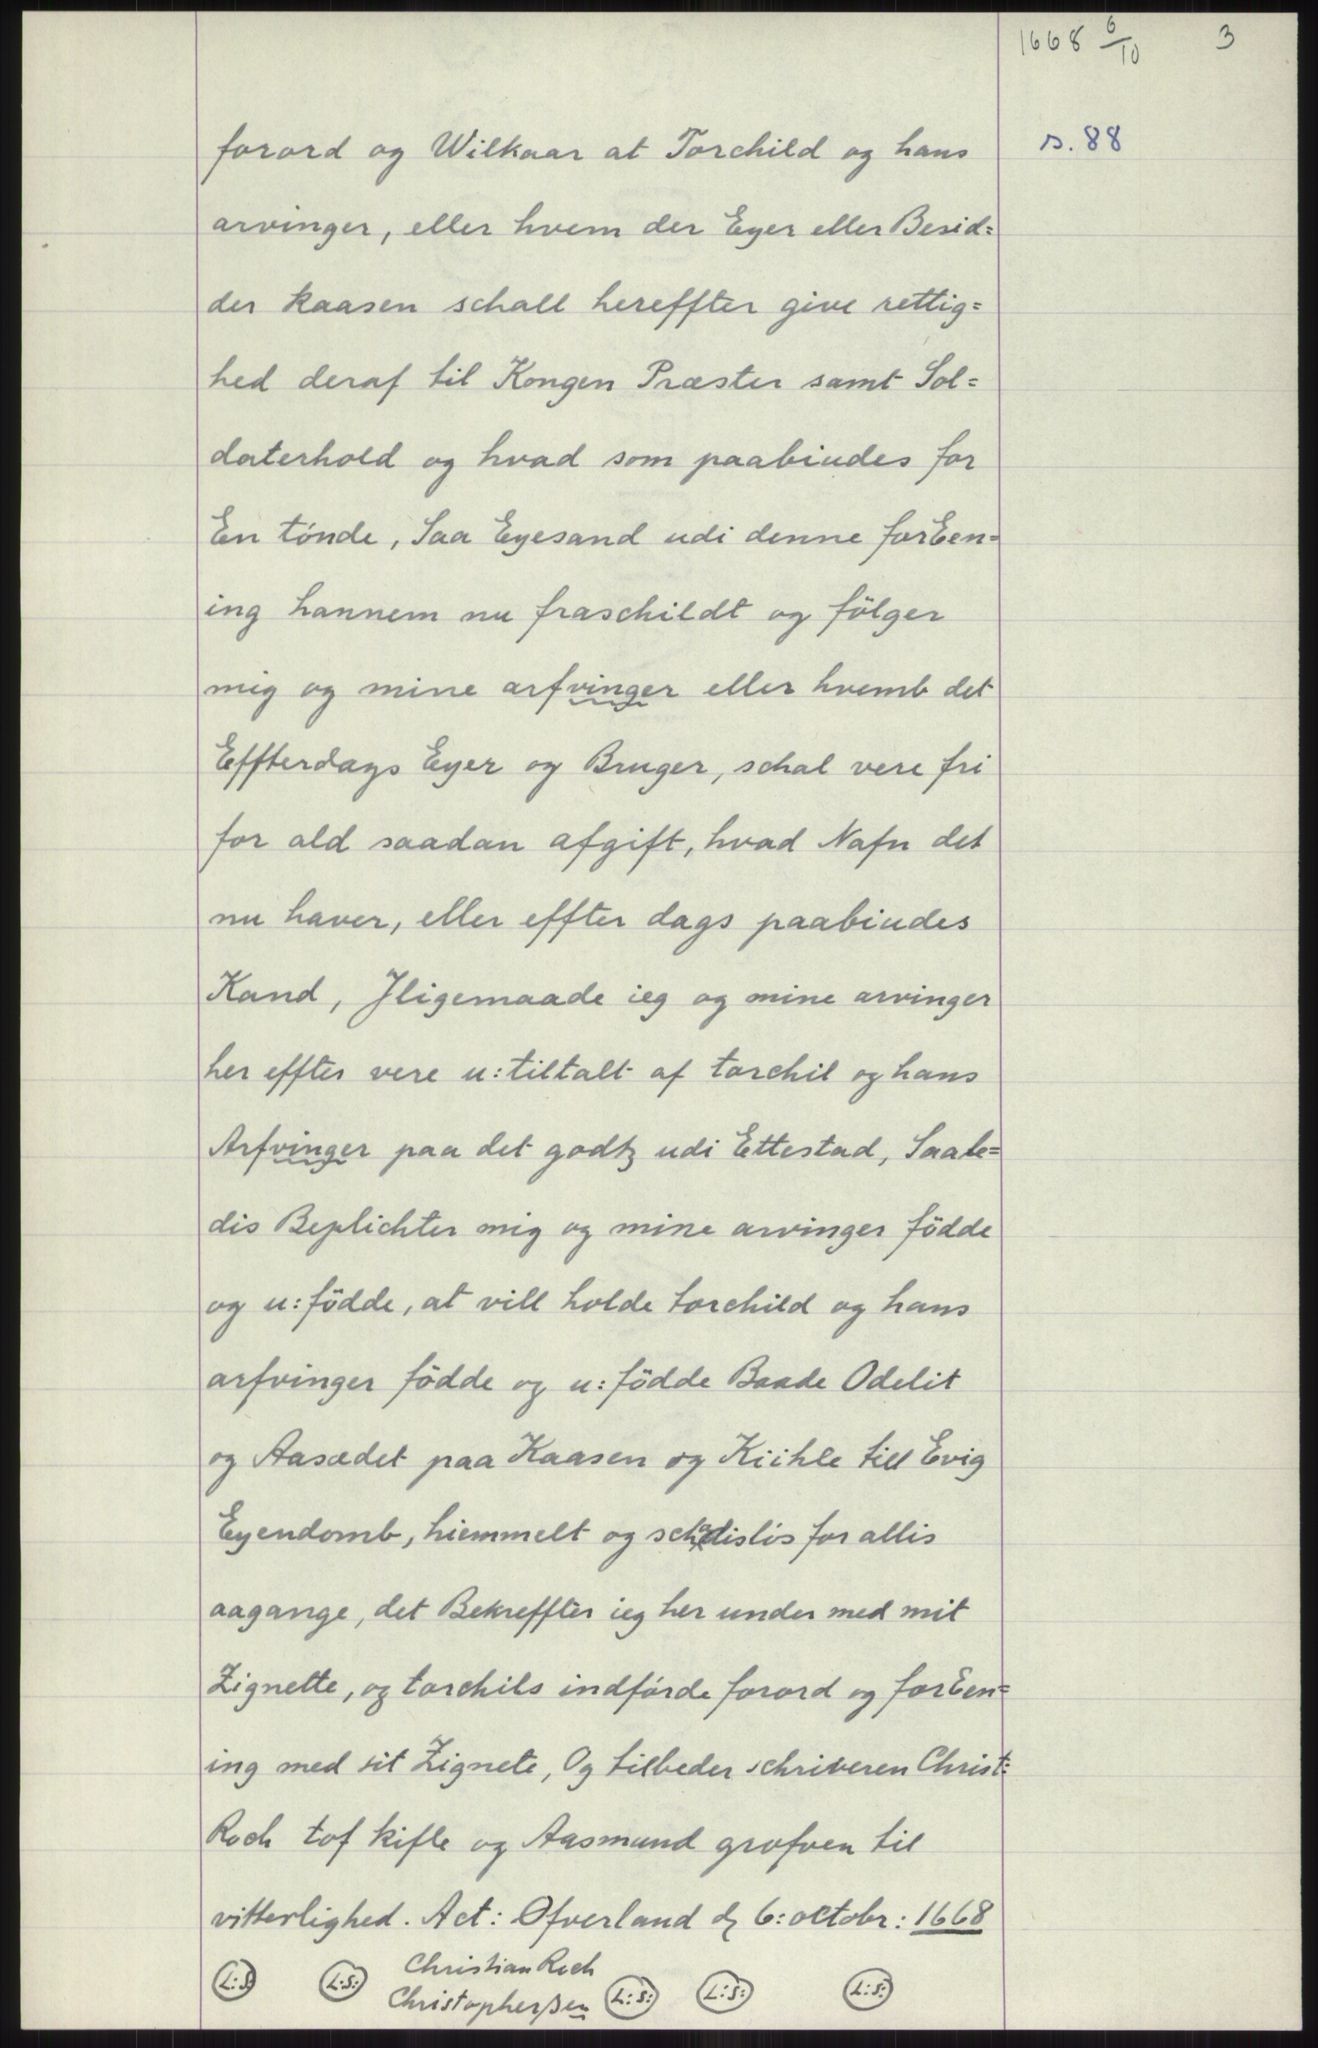 1668 6/10 3
s. 88
forord og Wilkaar at Torchild og hans
arvinger, eller hvem der Eyer eller Besid=
der kaasen schall hereffter give rettig=
hed deraf til Kongen Præster samt Sol=
daterhold og hvad som paabiudes for
En tónde, Saa Eyesand udi denne forEen=
ing hannem nu fraschildt og fölger
mig og mine arfvinger eller hvemb det
Effterdags Eyer og Bruger, schal vere fri
for ald saadan afgift, hvad Nafn det
nu haver, eller effter dags paabiudes
Kand, Jligemaade ieg og mine arvinger
her effter vere u:tiltalt af torchil og hans
Arfvinger paa det godtz udi Ettestad, Saale=
dis Beplichter mig og mine arvinger födde
og u:födde, at vill holde torchild og hans
arfvinger födde og u:födde Baade Odelit
og Aasædet paa Kaasen og Kiihle till Evig
Eyendomb, hiemmelt og schadislós for allis
aagange, det Bekreffter ieg her under med mit
Zignette, og torchils indfórde forord og forEen=
ing med sit Zignete, Og tilbeder schriveren Christ:
Roch tof kifle og Aasmund grofven til
vitterlighed. Act: Ofverland dz 6: octobr: 1668
L:S: L:S: Christian Roch
Christopherßen L:S: L:S: L:S: